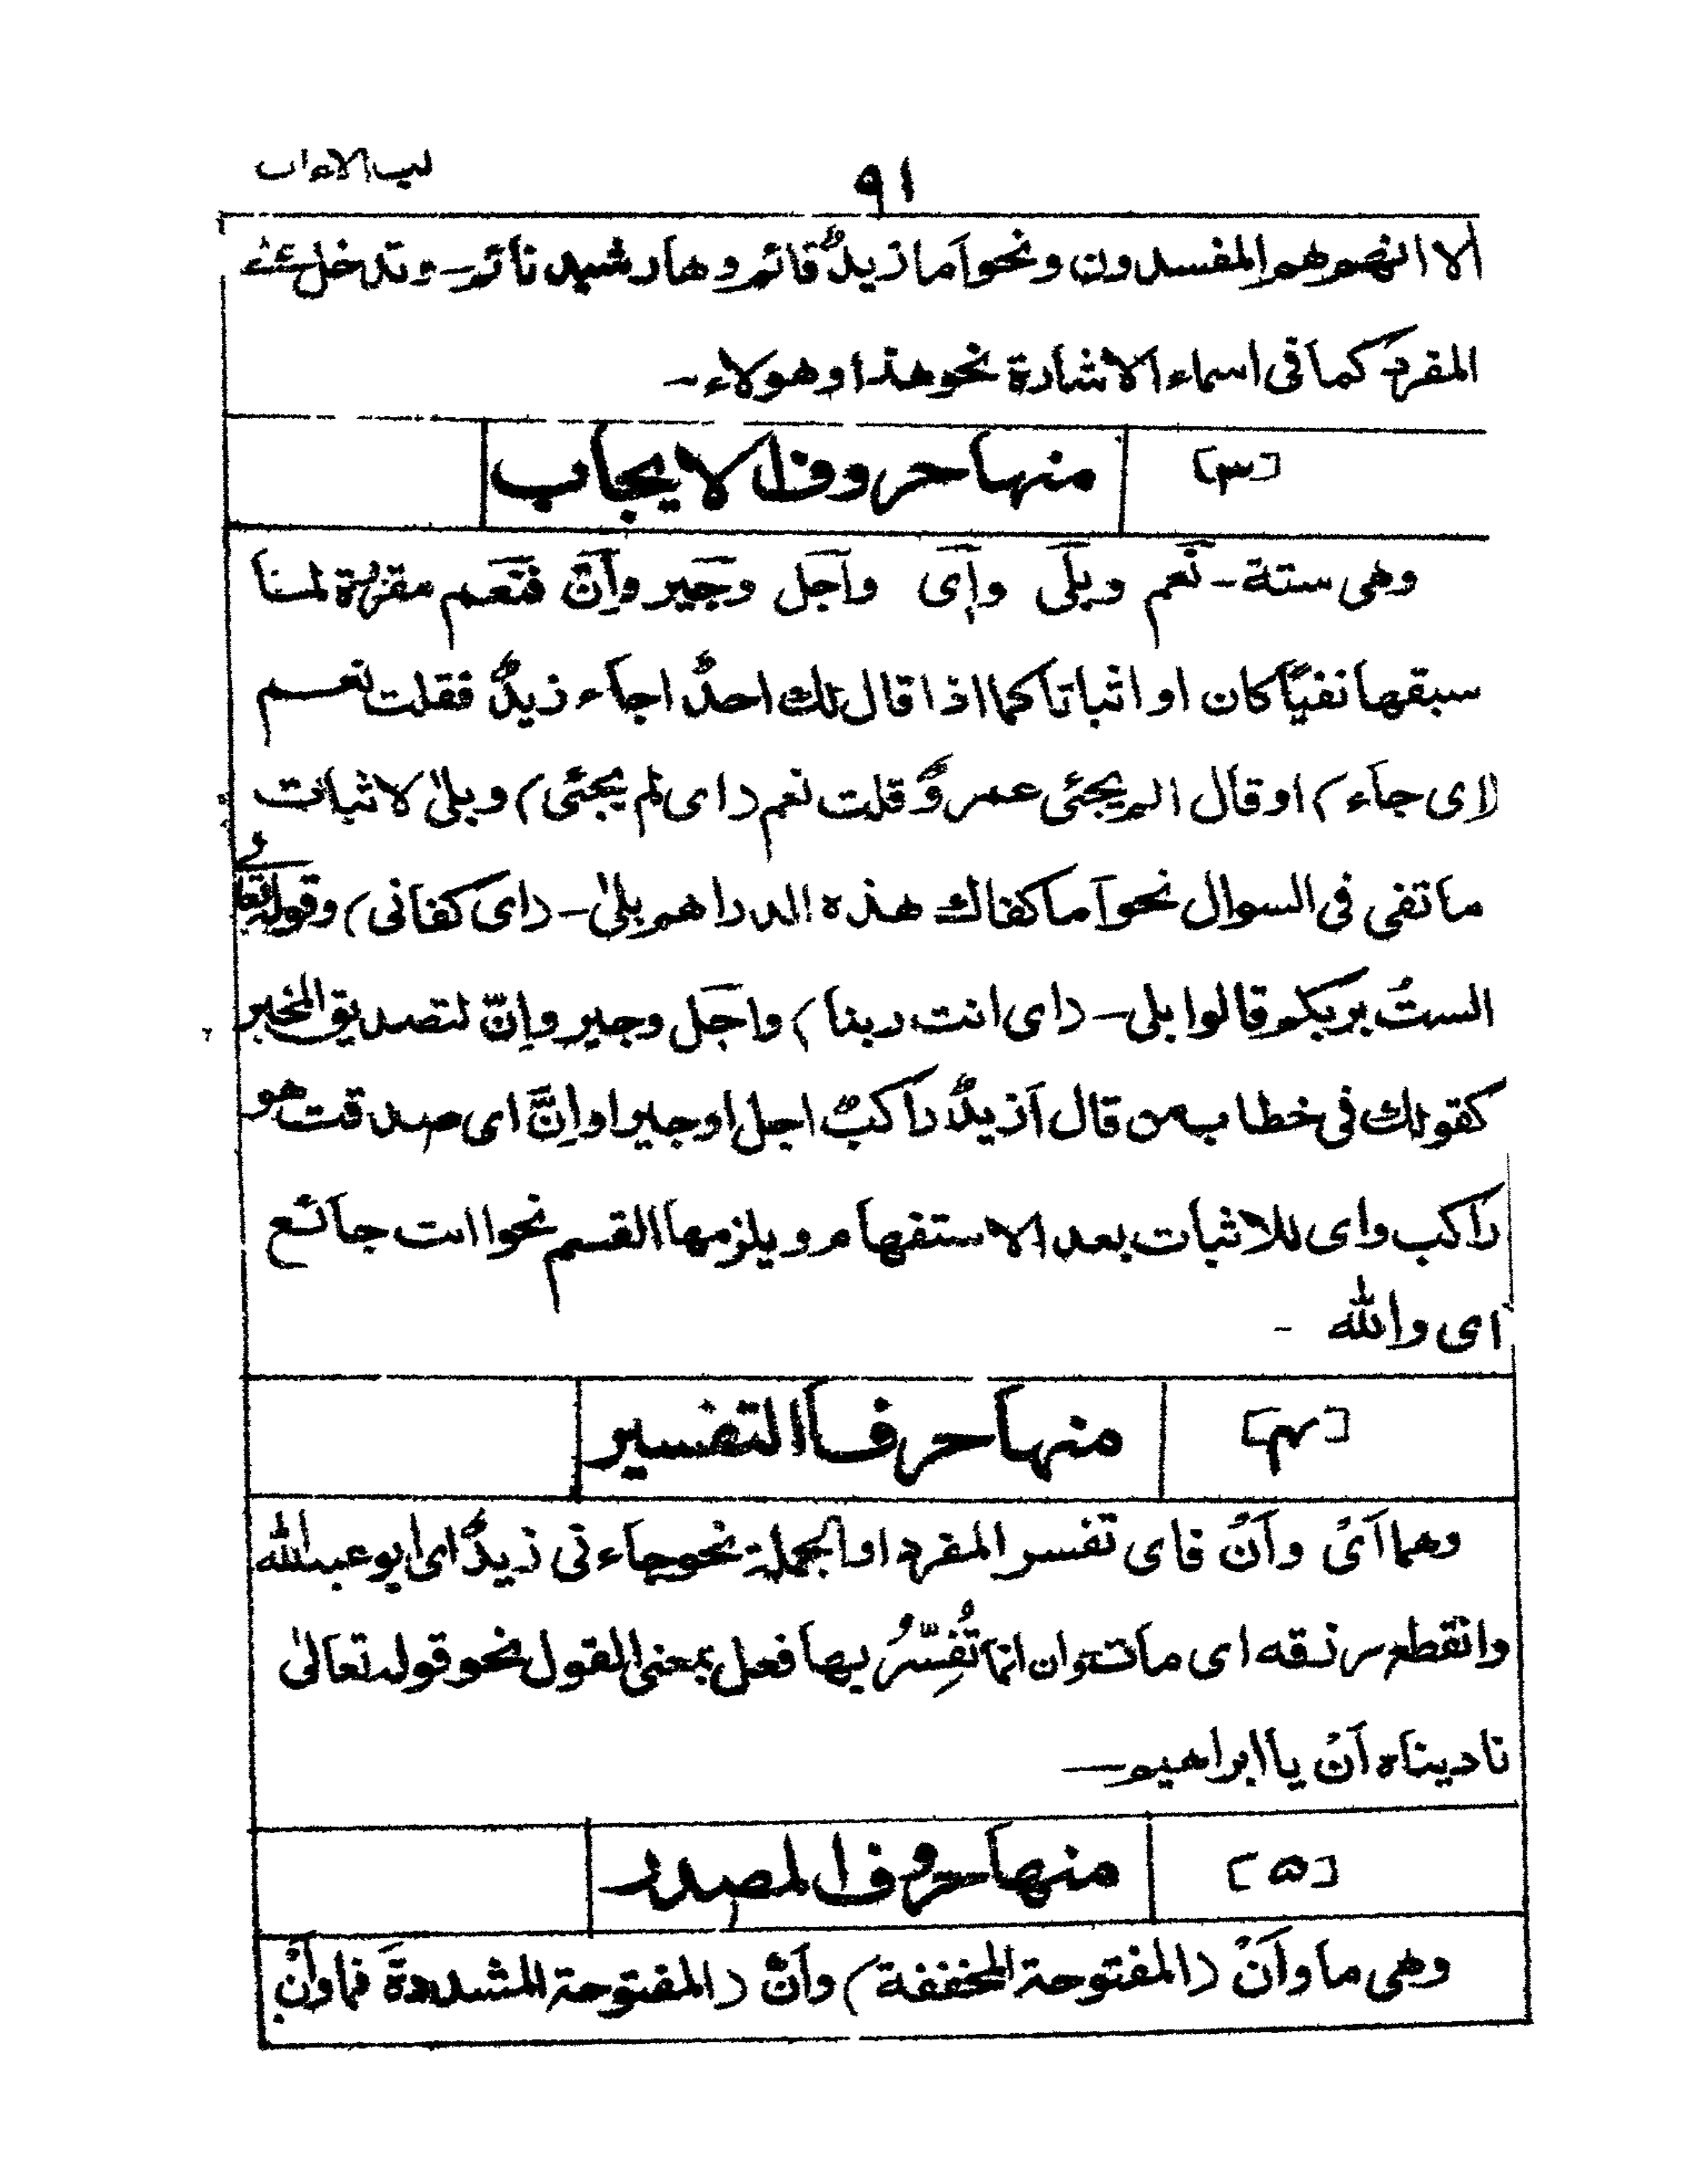 لب الاعراب
٩١
الا انهم هم المفسدون ونحو اَما زيدٌ قائم وها رشيد نائم۔ وتدخل على
المفرد كما فى اسماء الاشارة نحو هذا وهولاء۔
[٣] منها حروف الايجاب
وهى ستة۔ نَعَم وبَلَى وإَى وأجَل وجَير وإَنَّ فنَعَم مقررة لمنا
سبقها نفيًا كان او اثباتا كما اذا قال لك احدٌ اجاَء زيدٌ فقلت نعم
(اى جاَء) او قال الم يجئى عمروٌ قلت نعم (اى لم يجئى) وبلىٰ لاثبات
ما تفى فى السوال نحو آما كفاك هذه الدراهم بلىٰ۔ (اى كفانى) وقوله تعالى
الستُ بربكم قالوا بلى۔ (اى انت ربنا) واجَل وجير وإنّ لتصديق المخبر
كقولك فى خطاب من قال اَزيدٌ راكبٌ اجل او جير او إنَّ اى صدقت هو
راكب واى للاثبات بعد الاستفهام ويلزمها القسم نحو اانت جائع
اى والله -
[۴] منها حرفا التفسير
وهما اَىْ وأنْ فاى تفسر المفرد او الجملة نحو جاءنى زيدٌ اى ابو عبدالله
وانقطع رزقه اى مات وان انما تُفسِّرُ بها فعل بمعنى القول نحو قوله تعالىٰ
ناديناه اَنْ يا ابراهيم۔
[۵] منها حروف المصدر
وهى ما وأنْ (المفتوحة المخففة) وأنَّ (المفتوحة المشددةَ فما وأنْ